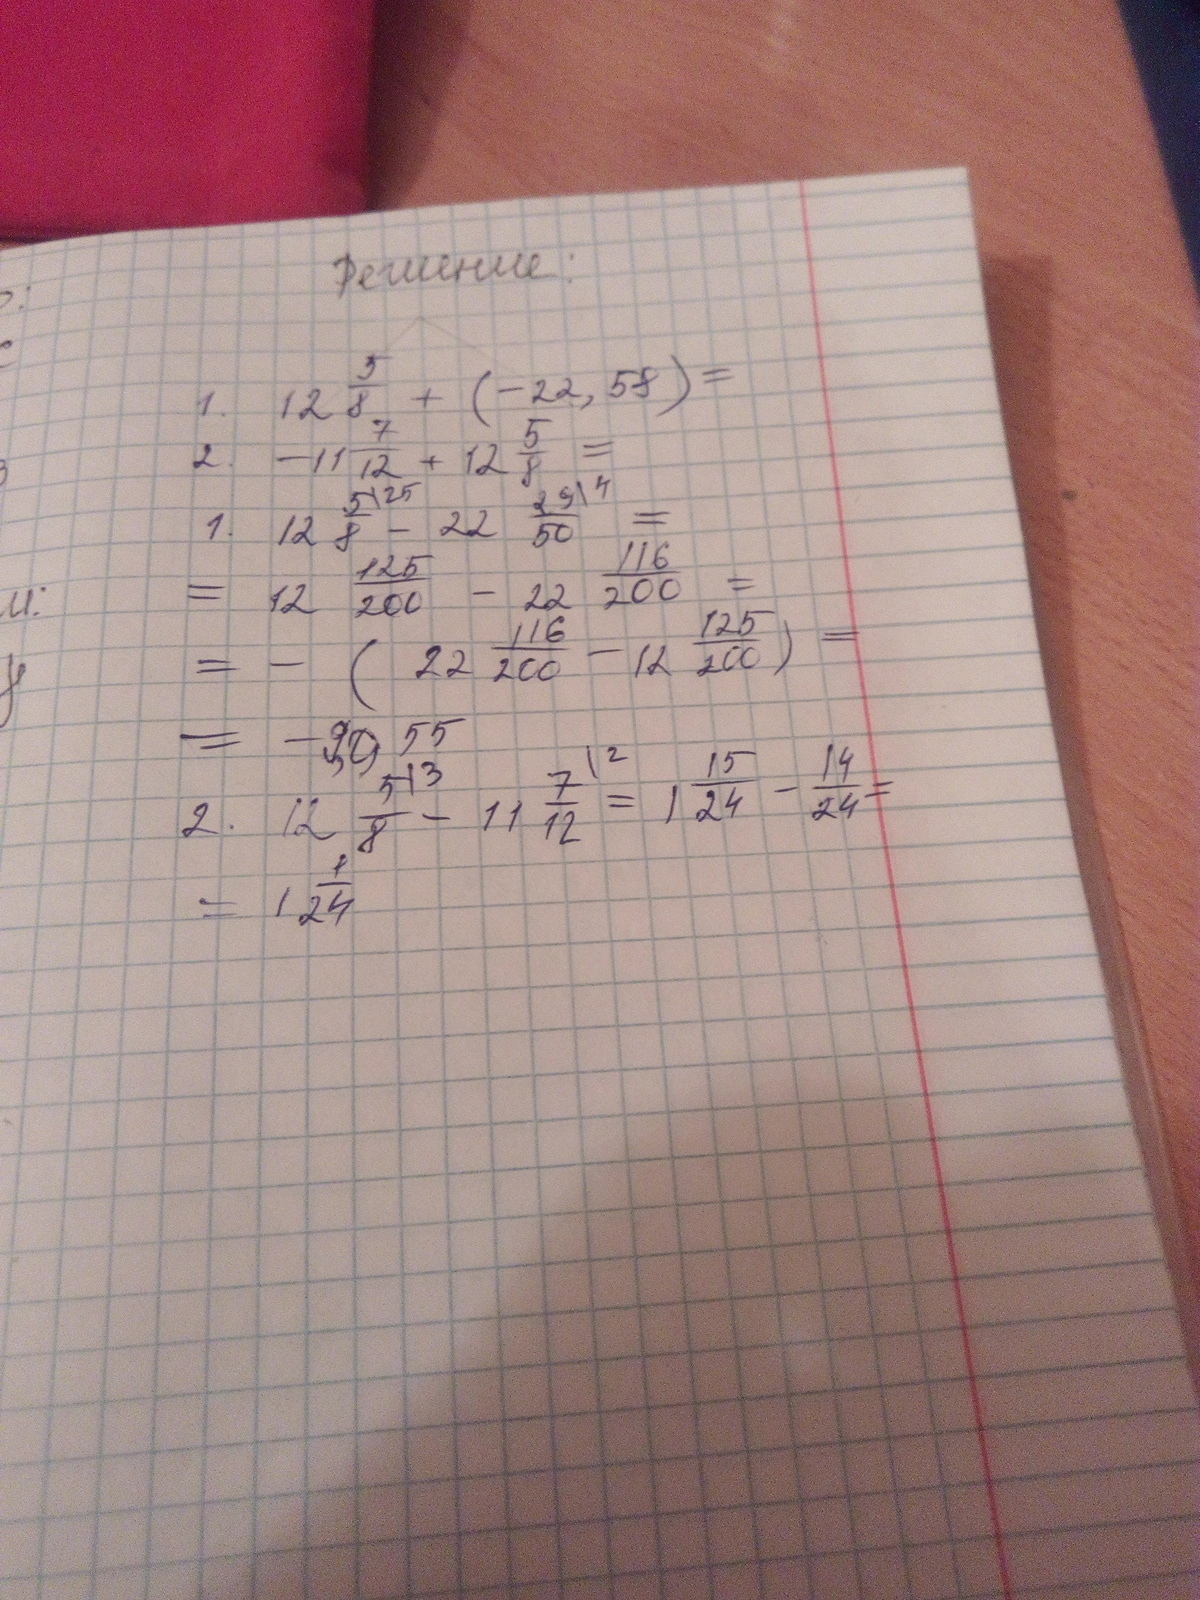 Решение:
1. 12 5/8 + (-22,58) =
2. -11 7/12 + 12 5/8 =
1. 12 5\25/8 - 22 29\4/50 =
= 12 125/200 - 22 116/200 =
= - ( 22 116/200 - 12 125/200 ) =
2. 12 5\3/8 - 11 7\2/12 = 1 15/24 - 14/24 =
= 1 1/24